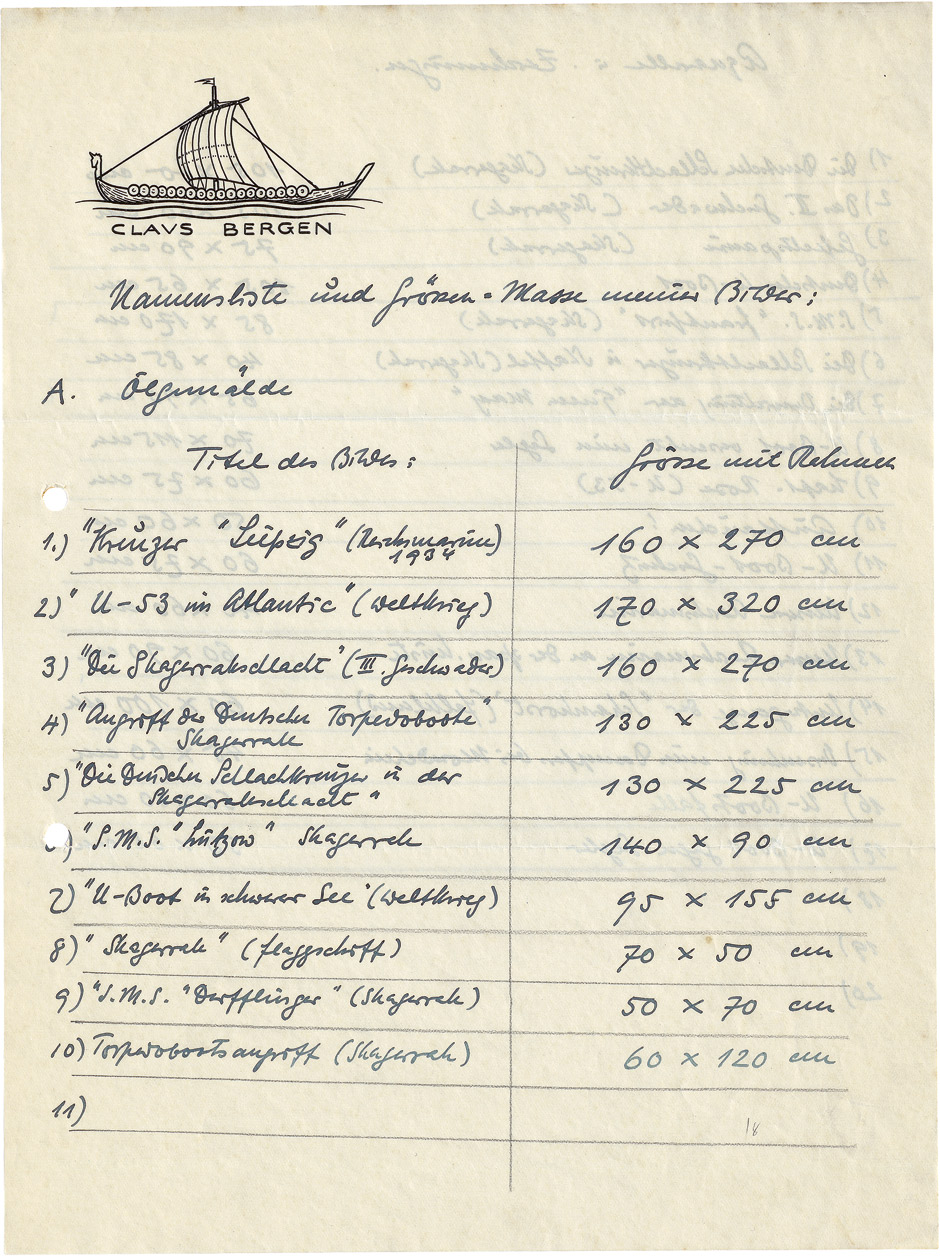 CLAVS BERGEN
Namensliste und Grössen-Masse meiner Bilder:
A. Ölgemälde
Titel des Bildes: Grösse mit Rahmen
1.) "Kreuzer "Leipzig" (Reichsmarine) 160 x 270 cm
1934
2) "U-53 im Atlantic" (Weltkrieg) 170 x 320 cm
3) "Die Skagerrakschlacht" (III. Geschwader) 160 x 270 cm
4) "Angriff der Deutschen Torpedoboote" 130 x 225 cm
Skagerrak
5) "Die Deutschen Schlachtkreuzer in der 130 x 225 cm
Skagerrakschlacht"
) "S.M.S. "Lützow" Skagerrak 140 x 90 cm
7) "U-Boot in schwerer See" (Weltkrieg) 95 x 155 cm
8) "Skagerrak" (Flaggschiff) 70 x 50 cm
9) "S.M.S. "Derfflinger" (Skagerrak) 50 x 70 cm
10) Torpedobootsangriff (Skagerrak) 60 x 120 cm
11)
18